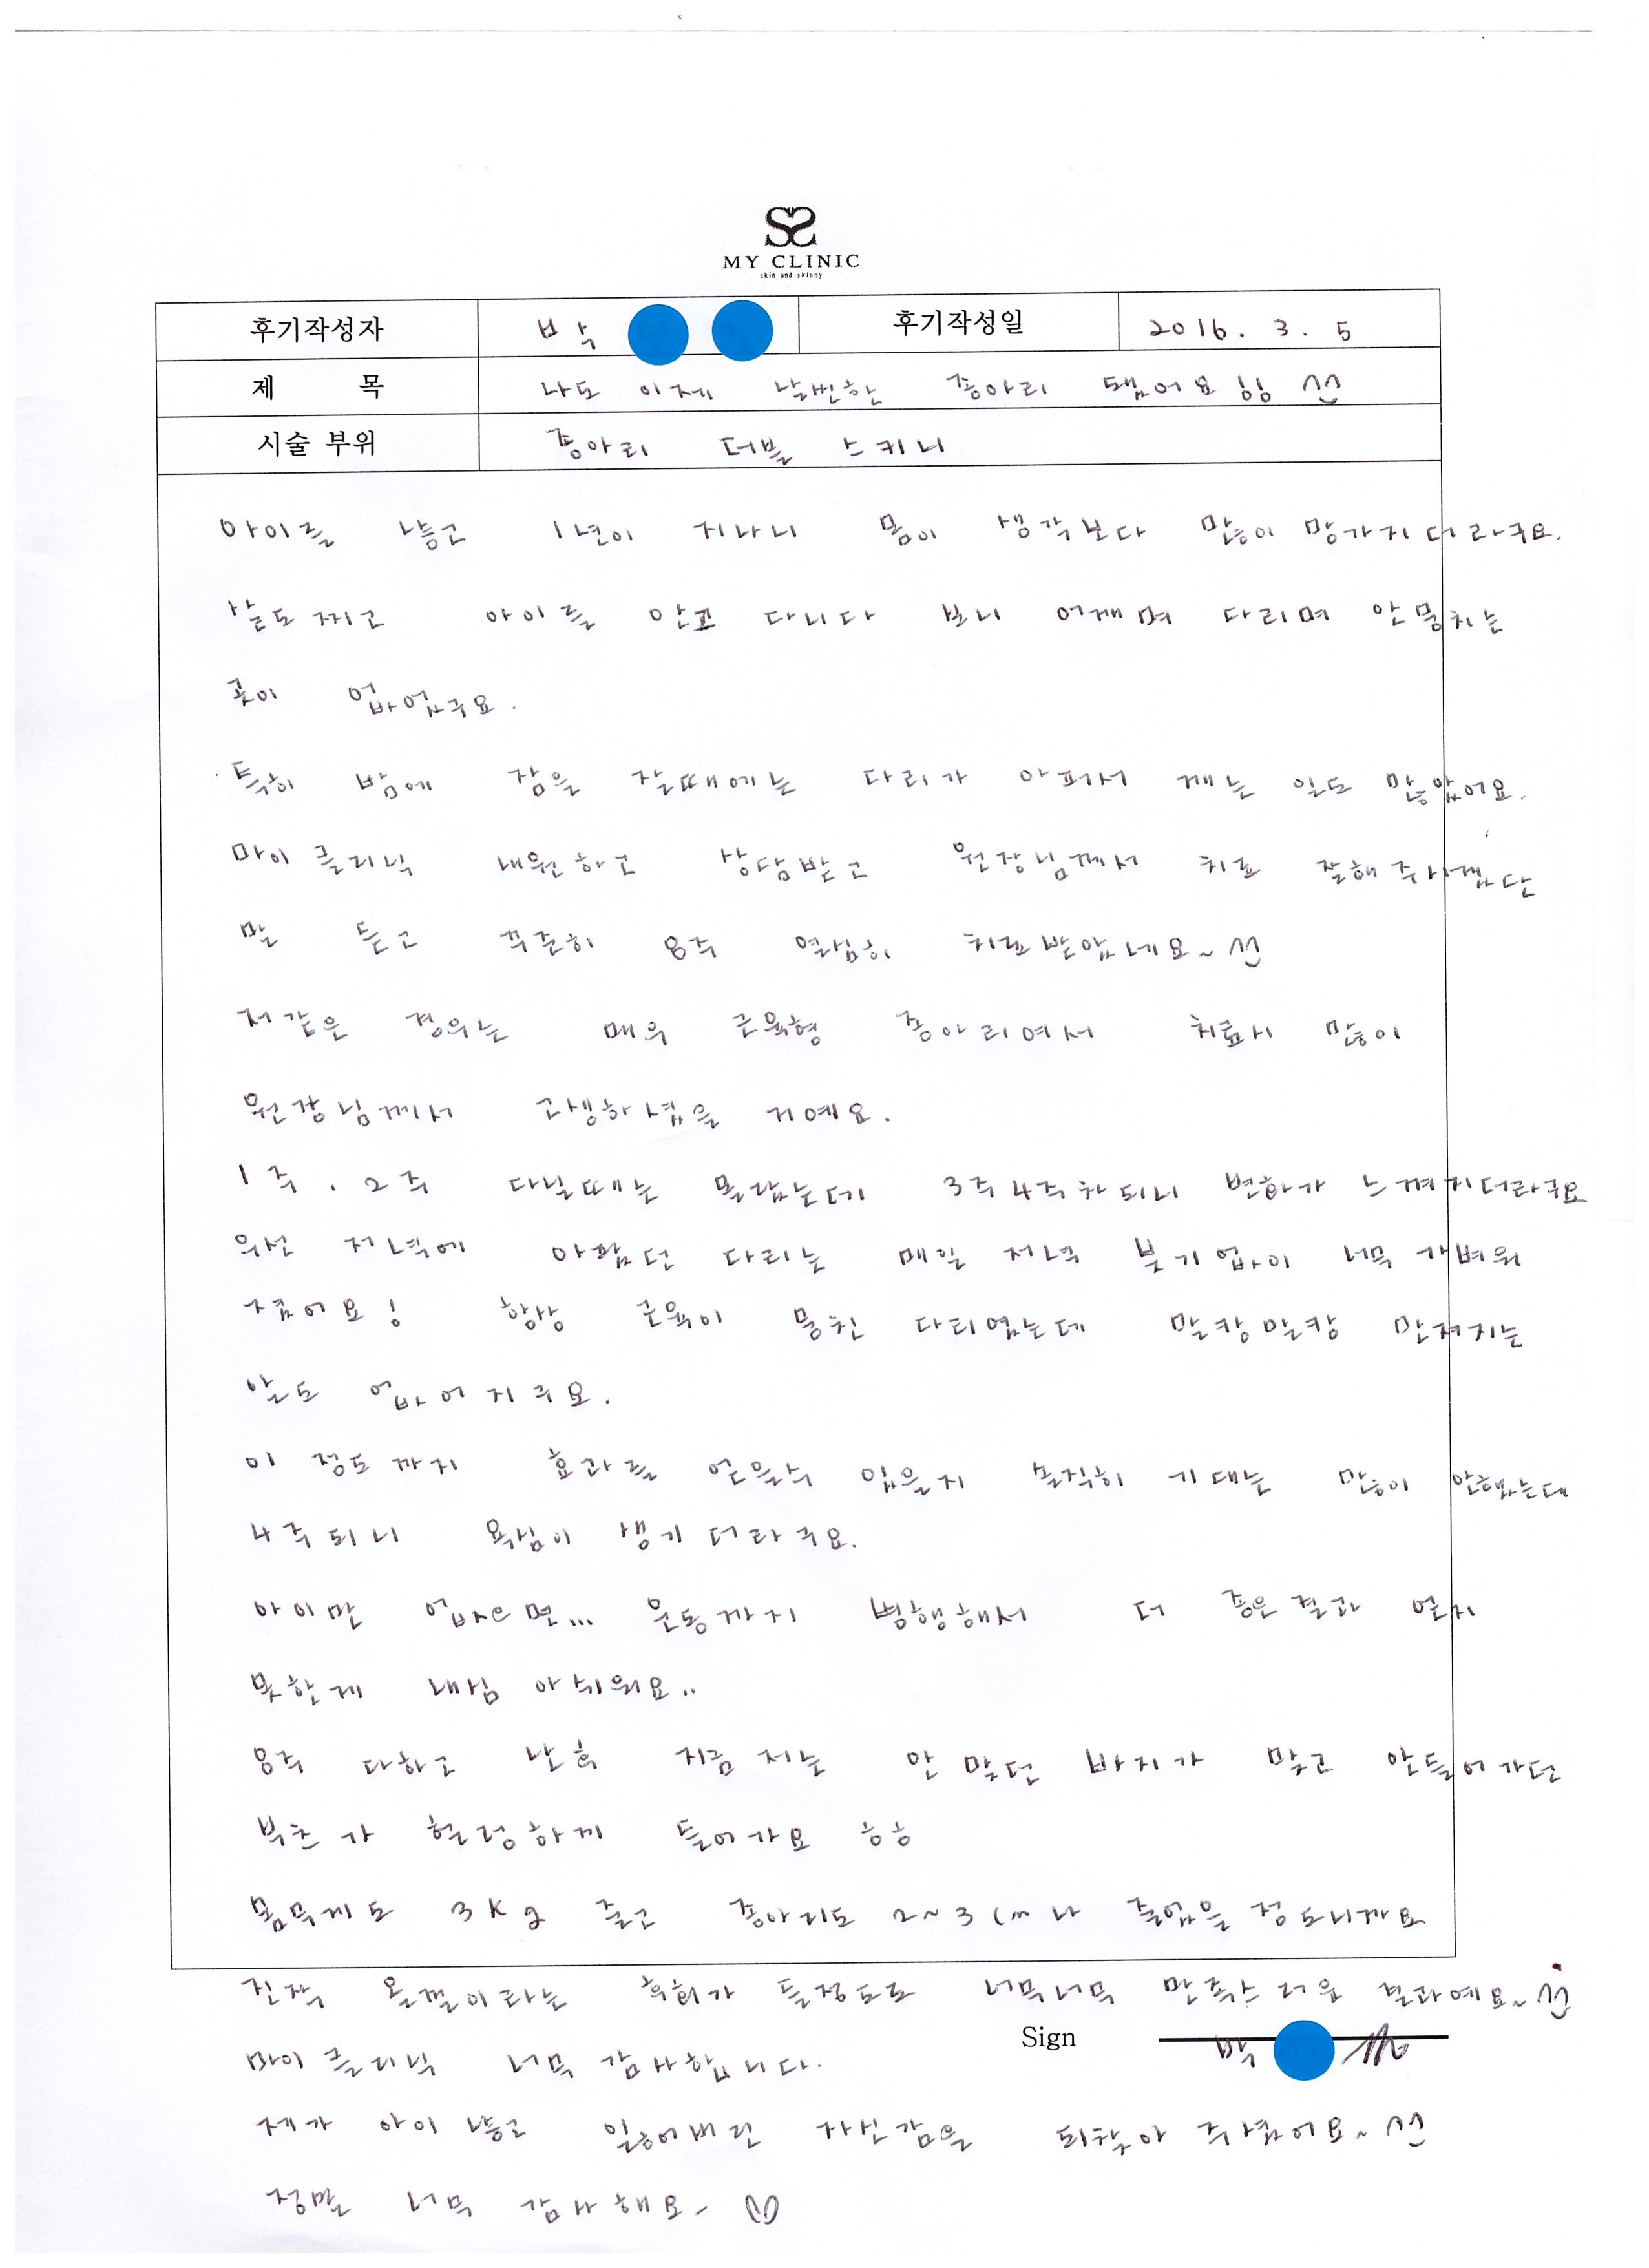 MY CLINIC
skin and skinny
후기작성자 박 후기작성일 2016. 3. 5
제 목 나도 이제 날씬한 종아리 됐어요 힝
시술 부위 종아리 더블 스키니
아이를 낳고 1년이 지나니 몸이 생각보다 많이 망가지더라구요.
살도 찌고 아이를 안고 다니다 보니 어깨며 다리며 안뭉치는
곳이 없었구요.
특히 밤에 잠을 잘때에는 다리가 아파서 깨는 일도 많았어요.
마이클리닉 내원하고 상담받고 원장님께서 치료 잘해주시겠단
말 듣고 꾸준히 8주 열심히 치료받았네요~
저같은 경우는 매우 근육형 종아리여서 치료시 많이
원장님께서 고생하셨을 거예요.
1주. 2주 다닐때는 몰랐는데 3주4주차되니 변화가 느껴지더라구요
우선 저녁에 아팠던 다리는 매일 저녁 붓기없이 너무 가벼워
졌어요! 항상 근육이 뭉친 다리였는데 말캉말캉 만져지는
알도 없어지구요.
이 정도까지 효과를 얻을수 있을지 솔직히 기대는 많이 안했는데
4주되니 욕심이 생기더라구요.
아이만 없으면... 운동까지 병행해서 더 좋은결과 얻지
못한게 내심 아쉬워요..
8주 다하고 난후 지금 저는 안 맞던 바지가 맞고 안들어가던
부츠가 헐렁하게 들어가요 ㅎㅎ
몸무게도 3kg 줄고 종아리도 2~3cm나 줄었을 정도니까요
진작 올껄이라는 후회가 들정도로 너무너무 만족스러운 결과예요~
Sign 박
마이클리닉 너무 감사합니다.
제가 아이 낳고 잃어버린 자신감을 되찾아 주셨어요~
정말 너무 감사해요~